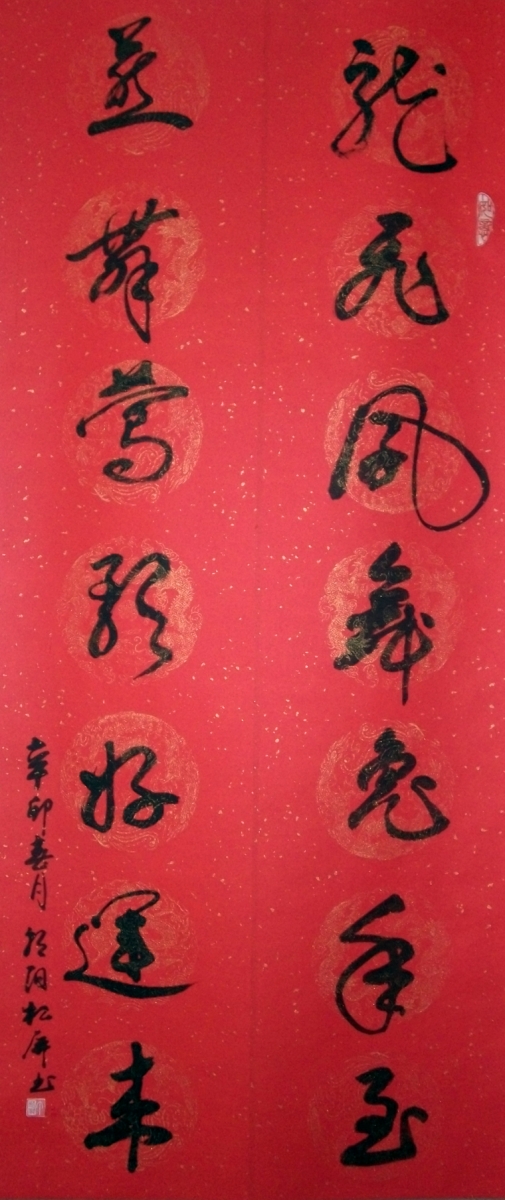 龍飛鳳舞兔年至
燕舞莺歌好運来
辛卯春月 阳松屏书